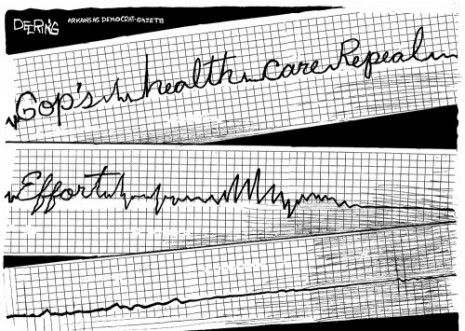 DEERING
ARKANSAS DEMOCRAT-GAZETTE
Gop's health care Repeal
Effort